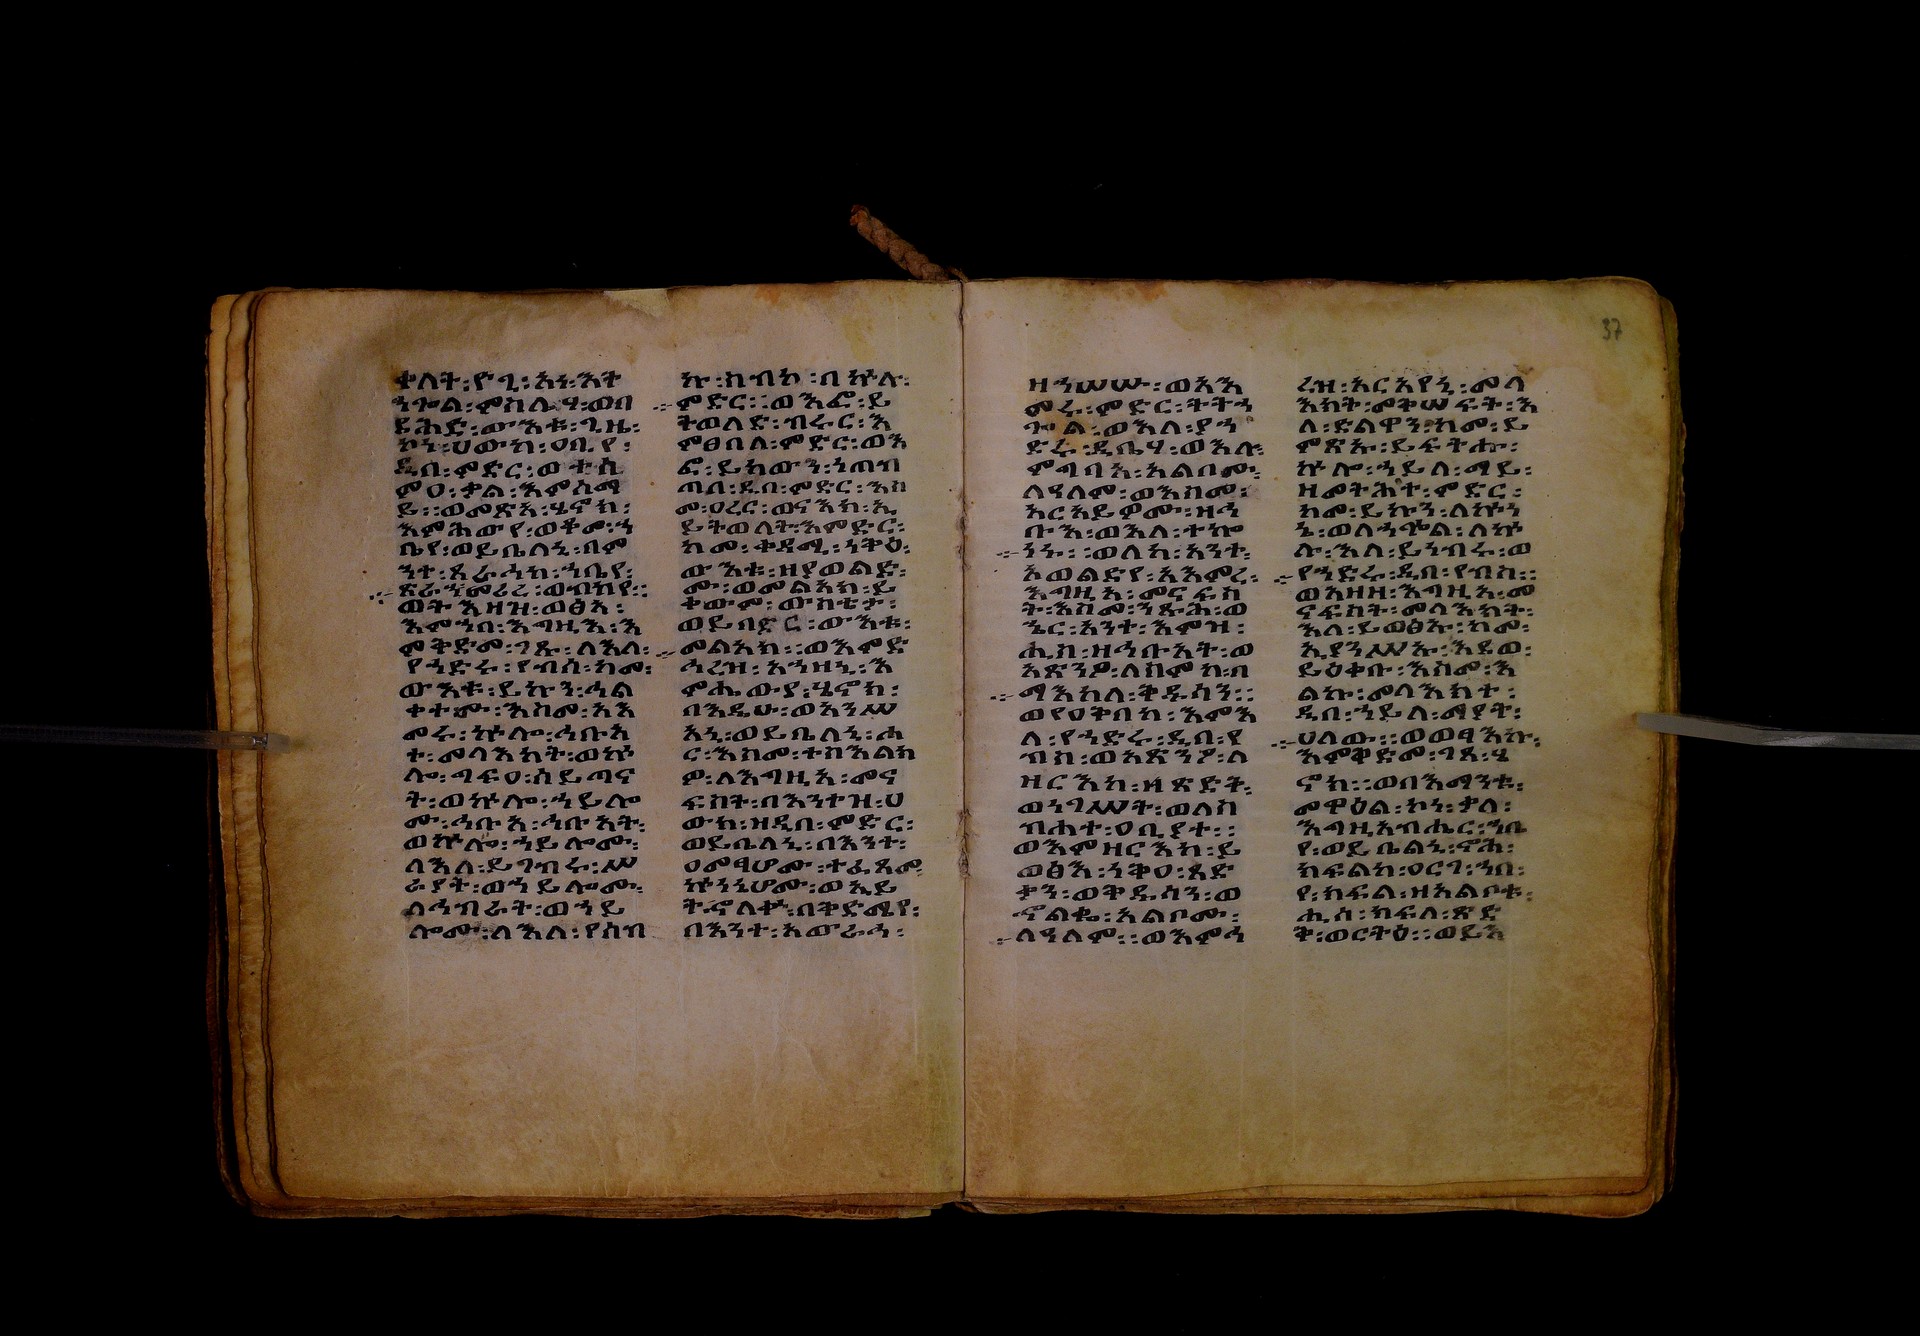 ቀለት፡ዮጊ፡አነ፡እት
ንጐል፡ምስሌሃ፡ወበ
ይሕድ፡ውእቱ፡ጊዜ፡
ኮነ፡ሀውክ፡ዐቢየ፡
ዲበ፡ምድር፡ወተሰ
ምዐ፡ቃል፡እምሰማ
ይ፡፡ወመጽአ፡ሄኖክ፡
እምሕውየ፡ወቆመ፡ኀ
ቤየ፡ወይቤለኒ፡በም
ንት፡ጸራኅከ፡ኀቤየ፡
ጽራኀመሪረ፡ወብካየ፡፡
ወትእዛዝ፡ወፅአ፡
እምኀበ፡እግዚእ፡እ
ምቅድመ፡ገጹ፡ለእለ፡
የኀድሩ፡የብሰ፡ከመ፡
ውእቱ፡ይኩን፡ኅል
ቀተሙ፡እስመ፡አእ
መሩ፡ኵሎ፡ኅቡአ
ተ፡መላእክት፡ወኵ
ሎ፡ግፍዐ፡ሰይጣና
ት፡ወኵሎ፡ኀይሎ
ሙ፡ኅቡአ፡ኅቡአት፡
ወኵሎ፡ኀይሎሙ፡
ለእለ፡ይገብሩ፡ሥ
ራያት፡ወኀይሎሙ፡
ለኅብራት፡ወኀይ
ሎሙ፡ለእለ፡የሰብ
ኩ፡ክብኮ፡በኵሉ፡
ምድር፡፡ወእፎ፡ይ
ትወለድ፡ብሩር፡እ
ምፀበለ፡ምድር፡ወእ
ፎ፡ይከውን፡ነጠብ
ጣበ፡ዲበ፡ምድር፡እስ
መ፡ዐረር፡ወናእክ፡ኢ
ይትወለት፡እምድር፡
ከመ፡ቀዳሚ፡ነቅዕ፡
ውእቱ፡ዘያወልድ፡
ሙ፡ወመልአክ፡ይ
ቀውም፡ውስቴታ፡
ወይበድር፡ውእቱ፡
መልአክ፡፡ወእምድ
ኅረዝ፡አኀዘኒ፡እ
ምሔውየ፡ሄኖክ፡
በእዴሁ፡ወአንሥ
አኒ፡ወይቤለኒ፡ሐ
ር፡እስመ፡ተስእልክ
ዎ፡ለእግዚአ፡መና
ፍስት፡በእንተዝ፡ሀ
ውክ፡ዘዲበ፡ምድር፡
ወይቤለኒ፡በእንተ፡
ዐመፃሆሙ፡ተፈጸመ
ኵነኔሆሙ፡ወኢይ
ትኖለቍ፡በቅድሜየ፡
በእንተ፡አውራኅ፡
ዘኀሠሡ፡ወአእ
መሩ፡ምድር፡ትትኀ
ጐል፡ወእለ፡የኀ
ድሩ፡ዲቤሃ፡ወእሉ፡
ምግባአ፡አልቦሙ፡
ለዓለም፡ወእስመ፡
አርአይዎሙ፡ዘኅ
ቡእ፡ወእለ፡ተኰ
ነኑ፡፡ወለከ፡አንተ፡
አወልድየ፡አእምረ፡
እግዚአ፡መናፍስ
ት፡እስመ፡ንጹሕ፡ወ
ኄር፡አንተ፡እምዝ፡
ሒስ፡ዘኅቡአት፡ወ
አጽንዖ፡ለስምከ፡በ
ማእከለ፡ቅዱሳን፡፡
ወየዐቅበከ፡እምእ
ለ፡የኀድሩ፡ዲበ፡የ
ብስ፡ወአጽንዖ፡ለ
ዘርእከ፡ዘጽድቅ፡
ወነገሥት፡ወለስ
ብሐት፡ዐቢያተ፡፡
ወእምዘርእከ፡ይ
ወፅእ፡ነቅዐ፡ጻድ
ቃን፡ወቅዱሳን፡ወ
ኆልቈ፡አልቦሙ፡
ለዓለም፡፡ወእምኅ
ረዝ፡አርአየኒ፡መላ
እክት፡መቅሠፍት፡እ
ለ፡ድልዋን፡ከመ፡ይ
ምጽኡ፡ይፍትሑ፡
ኵሎ፡ኀይለ፡ማይ፡
ዘመትሕተ፡ምድር፡
ከመ፡ይኩን፡ለኵነ
ኔ፡ወለኀጕል፡ለኵ
ሎ፡እለ፡ይነብሩ፡ወ
የኀድሩ፡ዲበ፡የብስ፡፡
ወአዘዘ፡እግዚአ፡መ
ናፍስት፡መላእክት፡
እለ፡ይወፅኡ፡ከመ፡
ኢያንሥኡ፡እደወ፡
ይዕቀቡ፡እስመ፡እ
ልኩ፡መላእክት፡
ዲበ፡ኀይለ፡ማያት፡
ሀለው፡፡ወወፃእኩ፡
እምቅድመ፡ገጸ፡ሄ
ኖክ፡፡ወበእማንቱ፡
መዋዕል፡ኮነ፡ቃለ፡
እግዚአብሔር፡ኀቤ
የ፡ወይቤለኒ፡ኖሕ፡
ክፍልከ፡ዐርገ፡ኀቤ፡
የ፡ክፍል፡ዘአልቦቱ፡
ሒስ፡ክፍለ፡ጽድ
ቅ፡ወርትዕ፡፡ወይእ
37